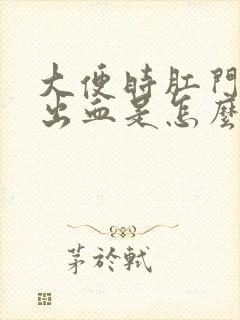 大便時肛門
出血是怎麼
茅於軾